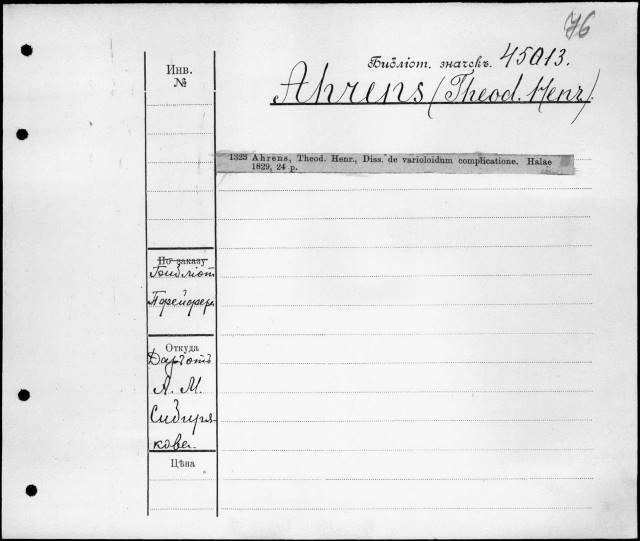 76
Библіот. значекъ. 45013.
Ahrens (Theod. Henr.)
Инв.
№
1323 Ahrens, Theod. Henr., Diss. de varioloidum complicatione. Halae
1829, 24 p.
По заказу
Библіот.
Пфейфера
Откуда
Даръ отъ
А. М.
Сибиря-
кова.
Цѣна